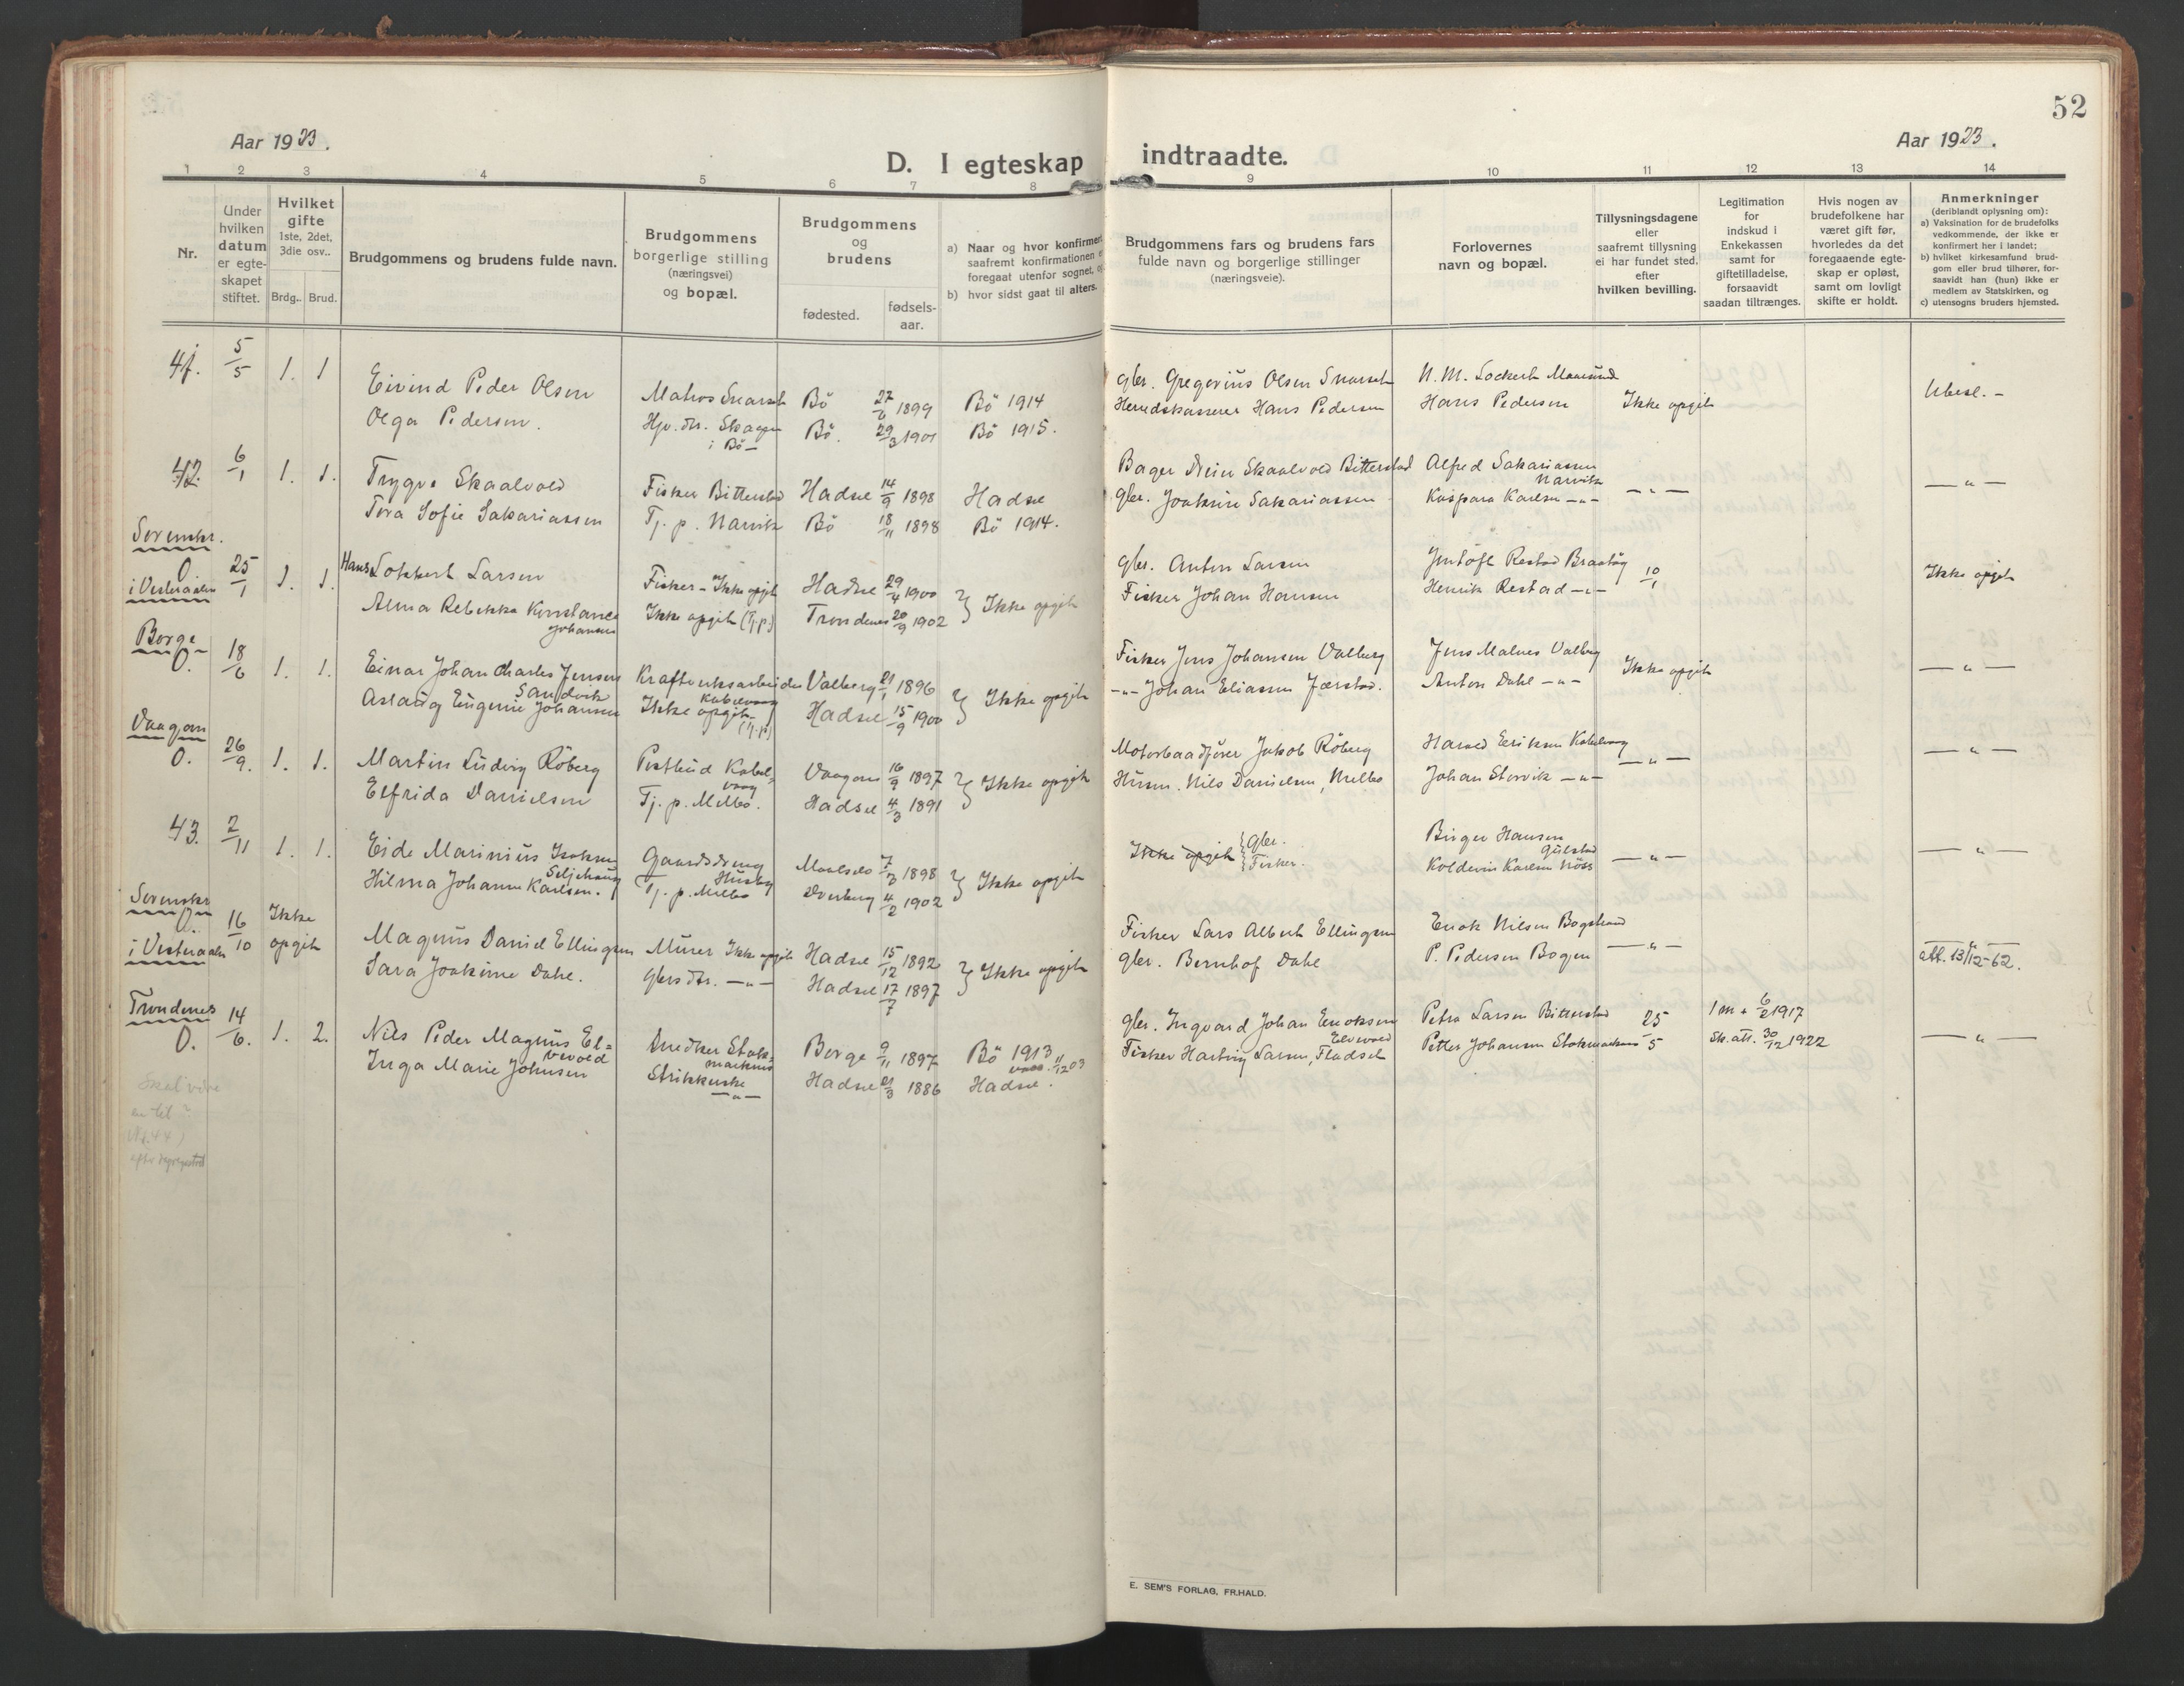 52
Aar 1923.
Aar 1923.
D. I egteskap indtraadte.
1 2 3 4 5 6 7 8 9 10 11 12 13 14
Nr.
Under hvilken datum er egteskapet stiftet.
Hvilket gifte
1ste, 2det, 3die osv..
Brdg.. Brud.
Brudgommens og brudens fulde navn.
Brudgommens borgerlige stilling (næringsvei) og bopæl.
Brudgommens og brudens
fødested.
fødsels-aar.
a) Naar og hvor konfirmert
saafremt konfirmationen
foregaat utenfor sognet,
b) hvor sidst gaat til alters.
Brudgommens fars og brudens fars
fulde navn og borgerlige stillinger
(næringsveie).
Forlovernes
navn og bopæl.
Tillysningsdagene
eller
saafremt tillysning
ei har fundet sted,
efter
hvilken bevilling.
Legitimation
for
indskud i
Enkekassen
samt for
giftetilladelse,
forsaavidt
saadan tiltrænges.
Hvis nogen av
brudefolkene har
været gift før,
hvorledes da det
foregaaende egte-
skap er opløst,
samt om lovligt
skifte er holdt.
Anmerkninger
(deriblandt oplysning om):
a) Vaksination for de brudefolks
vedkommende, der ikke er
konfirmert her i landet;
b) hvilket kirkesamfund brud-
gom eller brud tilhører, for-
saavidt han (hun) ikke er
medlem av Statskirken, og
c) utensogns bruders hjemsted.
41. 5/5 1. 1 Eivind Peder Olsen Matros Bö 1899 Bö 1914 gbr. Gregorius Olsen N. M. Lockert
Olga Pedersen. Bö. 29/3 1901 Bö 1915. Herredskasserer Hans Pedersen Hans Pedersen Ikke opgit Ubesl. -
i Bö -
42. 6/1 1. 1. Trygve Skaalvold Fisker Bitterstad Hadsel 14/9 1898 Hadsel Bager Skaalvold Bitterstad Alfred Sakariassen Narvik
Tora Sofie Sakariassen Tj. p. Narvik Bö 18/11 1898 Bö 1914. gbr. Joakim Sakariassen Kaspara Karlsen -"- -"- -"-
Sorenskr.
O. i Vesteraalen 25/1 1. 1. Hans Lokkert Larsen Fisker - Ikke opgit Hadsel 29/4 1900 gbr. Anton Larsen
Alma Rebekka Konstance Johansen Ikke opgit (Tj.p) Trondenes 20/9 1902 } Ikke opgit Fisker Johan Hansen Henrik Restad -"- 10/1 Ikke opgit
Borge
O. 18/6 1. 1. Einar Johan Charles Jensen Sandvik Kraftverksarbeider Kabelvaag Valberg 21/1 1896 Fisker Jens Johansen Valberg Jens Malnes Valberg
Aslaug Eugenie Johansen Ikke opgit (Tj.p) Hadsel 15/9 1900 } Ikke opgit -"- Johan Eliassen Jærstad. Anton Dahl -"- Ikke opgit -"-
Vaagan
O. 26/9. 1. 1. Martin Ludvig Röberg Postbud Kabelvaag Vaagan 16/9 1897 Motorbaadfører Jakob Röberg Harald Eriksen Kabelvaag
Elfrida Danielsen Tj. p. Melbo. Hadsel 4/3 1891 } Ikke opgit Husm. Nils Danielsen, Melbo Johan Storvik -"- -"- -"-
43. 2/11 1. 1. Eide Marinius Isaksen Seljehaug Gaardsdreng Husby 7/3 1898 Ikke opgit { Gbr. Birger Hansen Gulstad
Hilma Johanne Karlsen. Tj. p. Melbo Dverberg 4/2 1902 } Ikke opgit { Fisker. Koldevin Karlsen Nöss -"- -"-
Sorenskr.
O. i Vesteraalen 16/10 Ikke opgit Magnus Daniel Ellingsen Murer Ikke opgit Hadsel 15/12 1892 Fisker Lars Albert Ellingsen Enok Nilsen Bogstrand
Sara Joakime Dahl. gbrs dtr. -"- Hadsel 17/7 1897 } Ikke opgit gbr. Bernhof Dahl P. Pedersen Bogen -"- -"- att. 13/12-62.
Trondenes
O. 14/6. 1. 2. Nils Peder Magnus Elvevold Snedker Stokmarknes Borge 9/11 1897 Bö 1913 gbr. Ingvard Johan Enoksen Elvevold Petra Larsen Bitterstad 25/5 1917
Inga Marie Johnsen Strikkerske -"- Hadsel 21/3 1886 Hadsel. 11/12 03 Fisker Hartvig Larsen, Fladset Petter Johansen Stokmarknes Sk. att. 30/12 1922 -"-
Skal være
en til
Nr. 44
E. SEM'S FORLAG, FR.HALD.